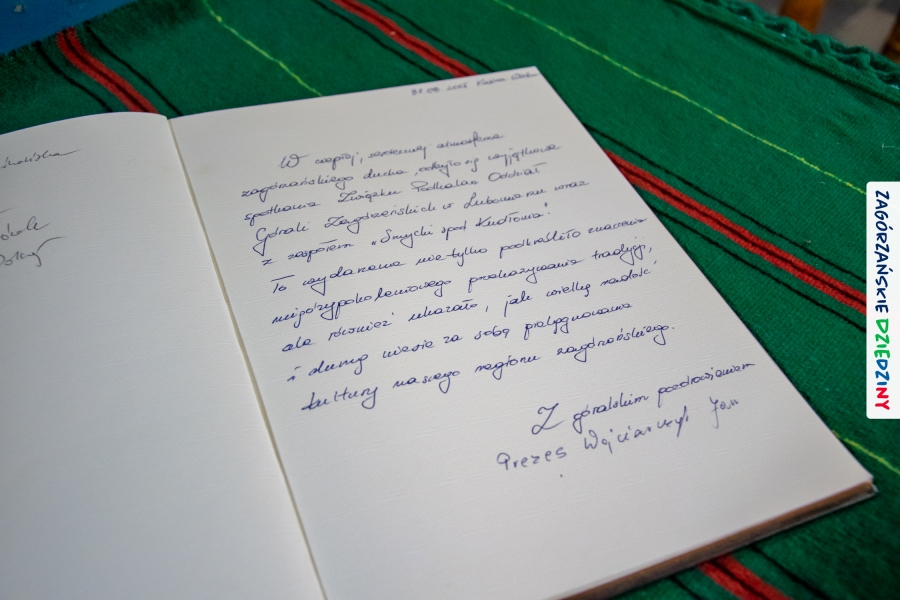 W ciepłej, serdecznej atmosferze
zagórzańskiego ducha, odbyło się wyjątkowe
spotkanie Związku Podhalan Oddział
Górali Zagórzańskich w Lubomierzu wraz
z zespołem „Smycki spod Kudłonia”.
To wydarzenie nie tylko podkreśliło znaczenie
międzypokoleniowego przekazywania tradycji,
ale również ukazało, jak wielką radość
i dumę niesie za sobą pielęgnowanie
kultury naszego regionu zagórzańskiego.
Z góralskim pozdrowieniem
Prezes Wojciarczyk Jan
ZAGÓRZAŃSKIE DZIEDZINY